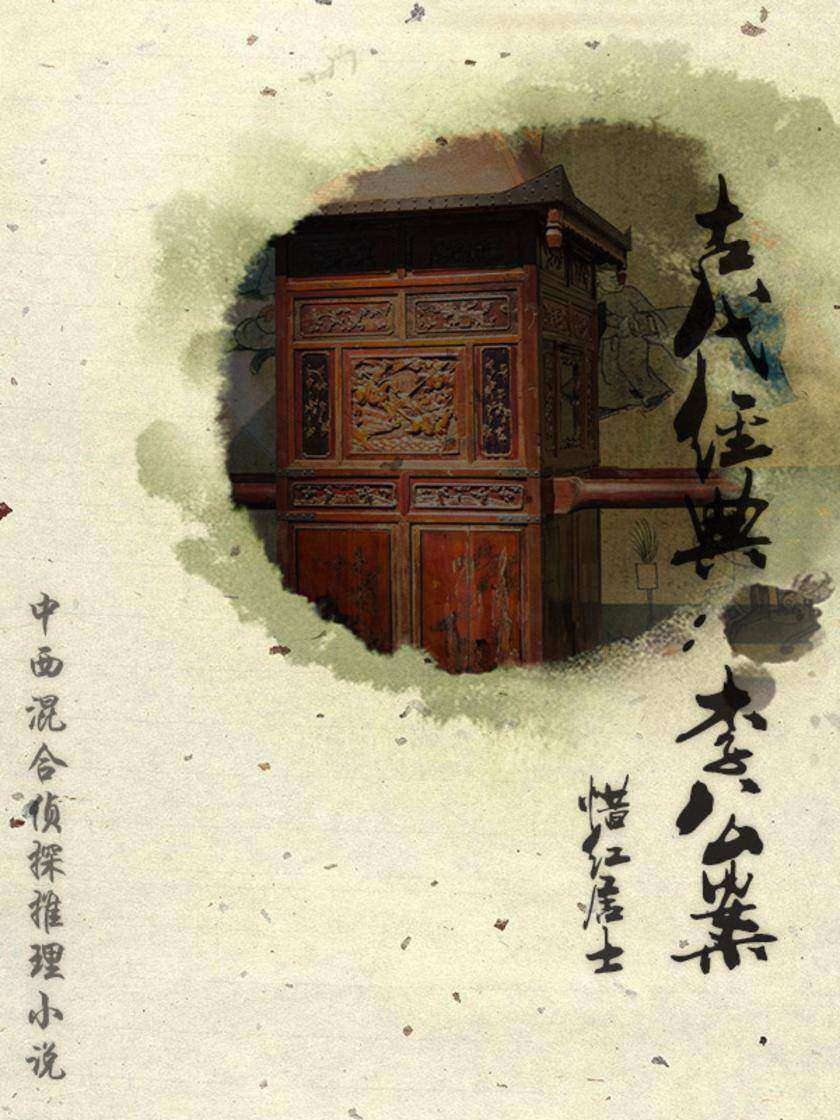 古代經典：李公案
惜红居士
中西混合侦探推理小说